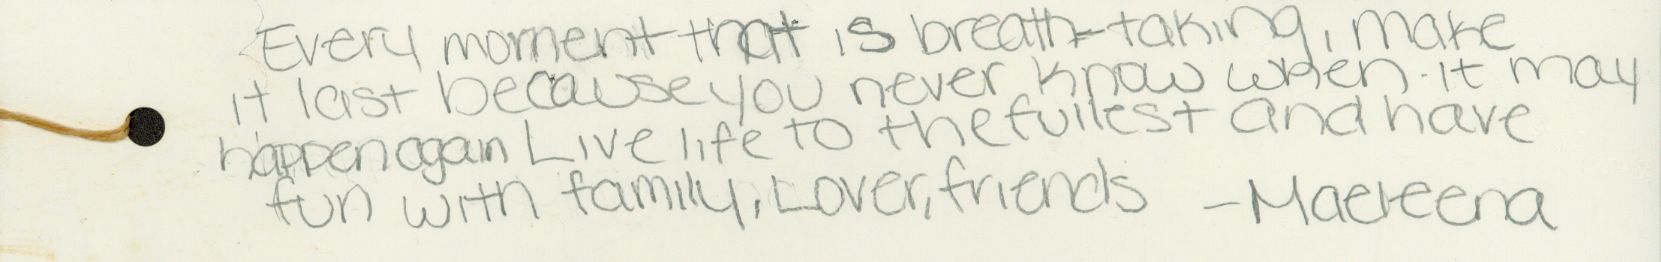 Every moment that is breath-taking, make
it last because you never know when it may
happen again Live life to the fullest and have
fun with family, Lover, friends -Maeleena